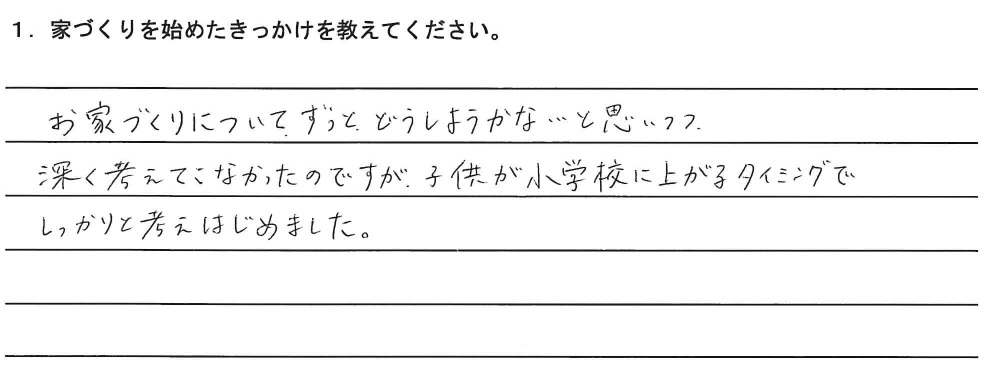 1. 家づくりを始めたきっかけを教えてください。
お家づくりについて、ずっと、どうしようかな…と思いつつ、
深く考えてこなかったのですが、子供が小学校に上がるタイミングで
しっかりと考えはじめました。